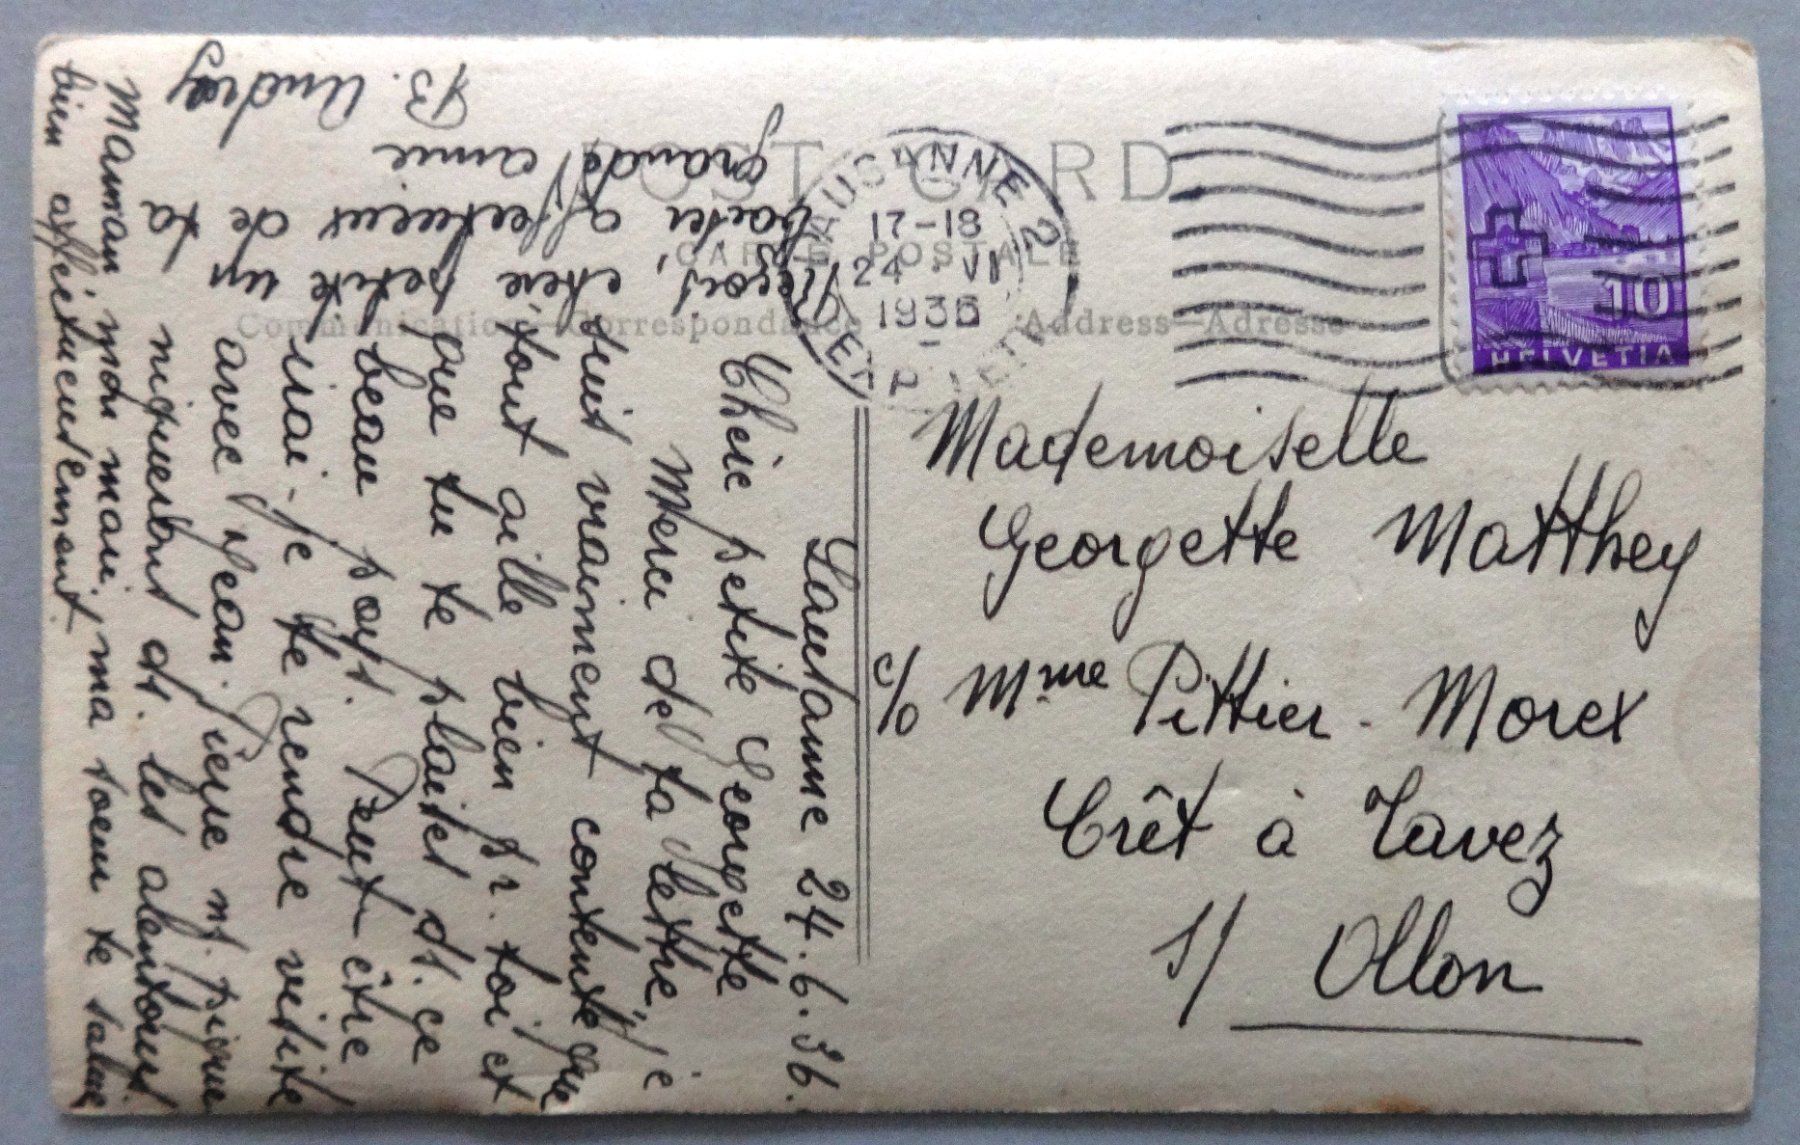 POST CARD
CARTE POSTALE
Communication—Correspondance
Address—Adresse
LAUSANNE 2
17-18
24.VI
1936
10
HELVETIA
Mademoiselle
Georgette Matthey
c/o Mme Pittier-Morex
Crêt à Tavez
s/ Ollon
Lausanne 24.6.36.
Chère petite Georgette
Merci de ta lettre, je
suis vraiment contente que
tout aille bien pr. toi et
que tu te plaises ds. ce
beau pays. Peut-être
irai-je te rendre visite
avec Jean. Pierre ns. pique
niquerons ds. les alentours.
Maman, mon mari, ma soeur te salue
bien affectueusement.
Reçois, chère petite un
baiser affectueux de ta
grande amie
B. Audrey